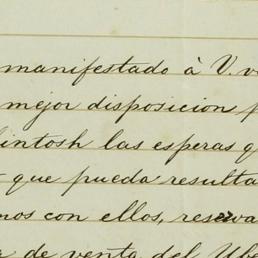 manifestado à V. v
mejor disposicion p
intosh las esperas q
que pueda resulta
mos con ellos, reserva
a de venta del Ube